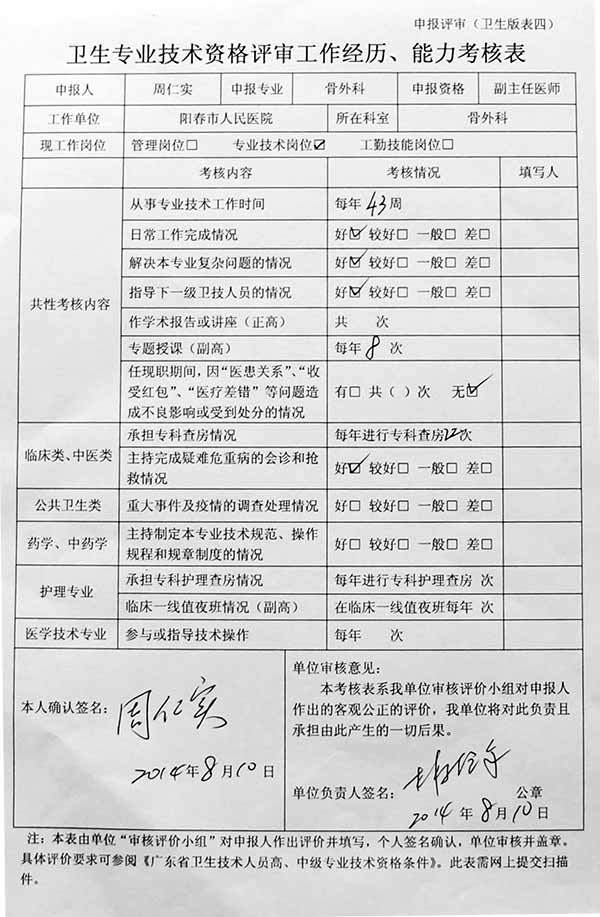 申报评审（卫生版表四）
卫生专业技术资格评审工作经历、能力考核表
申报人 周仁实 申报专业 骨外科 申报资格 副主任医师
工作单位 阳春市人民医院 所在科室 骨外科
现工作岗位 管理岗位□ 专业技术岗位☑ 工勤技能岗位□
考核内容 考核情况 填写人
共性考核内容
从事专业技术工作时间 每年43周
日常工作完成情况 好☑ 较好□ 一般□ 差□
解决本专业复杂问题的情况 好☑ 较好□ 一般□ 差□
指导下一级卫技人员的情况 好☑ 较好□ 一般□ 差□
作学术报告或讲座（正高） 共 次
专题授课（副高） 每年8次
任现职期间，因“医患关系”、“收
受红包”、“医疗差错”等问题造
成不良影响或受到处分的情况
有□ 共（ ）次 无☑
临床类、中医类
承担专科查房情况 每年进行专科查房 次
主持完成疑难危重病的会诊和抢
救情况
好☑ 较好□ 一般□ 差□
公共卫生类 重大事件及疫情的调查处理情况 好□ 较好□ 一般□ 差□
药学、中药学
主持制定本专业技术规范、操作
规程和规章制度的情况
好□ 较好□ 一般□ 差□
护理专业
承担专科护理查房情况 每年进行专科护理查房 次
临床一线值夜班情况（副高） 在临床一线值夜班每年 次
医学技术专业 参与或指导技术操作 每年 次
本人确认签名：周仁实
2014年8月10日
单位审核意见：
本考核表系我单位审核评价小组对申报人
作出的客观公正的评价，我单位将对此负责且
承担由此产生的一切后果。
单位负责人签名： 公章
2014年8月10日
注：本表由单位“审核评价小组”对申报人作出评价并填写，个人签名确认，单位审核并盖章。
具体评价要求可参阅《广东省卫生技术人员高、中级专业技术资格条件》。此表需网上提交扫描
件。